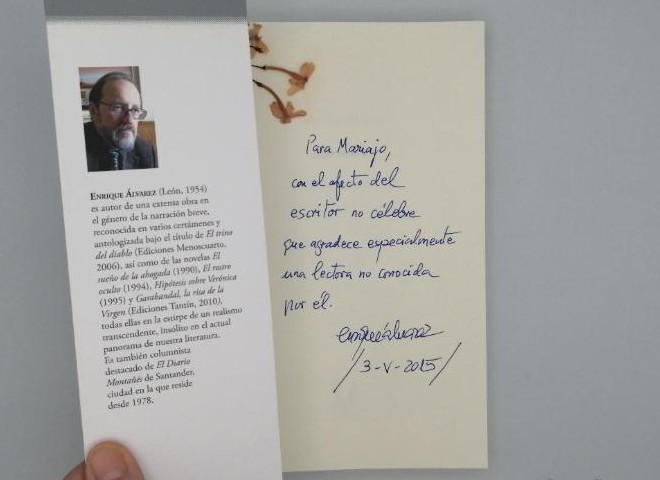 ENRIQUE ÁLVAREZ (León, 1954)
es autor de una extensa obra en
el género de la narración breve,
reconocida en varios certámenes y
antologizada bajo el título de El trino
del diablo (Ediciones Menoscuarto,
2006), así como de las novelas El
sueño de la ahogada (1990), El rostro
oculto (1994), Hipótesis sobre Verónica
(1995) y Garabandal, la risa de la
Virgen (Ediciones Tantín, 2010),
todas ellas en la estirpe de un realismo
transcendente, insólito en el actual
panorama de nuestra literatura.
Es también columnista
destacado de El Diario
Montañés de Santander,
ciudad en la que reside
desde 1978.
Para Mariajo,
con el afecto del
escritor no célebre
que agradece especialmente
una lectora no conocida
por él.
Enrique Álvarez
/3-V-2015/